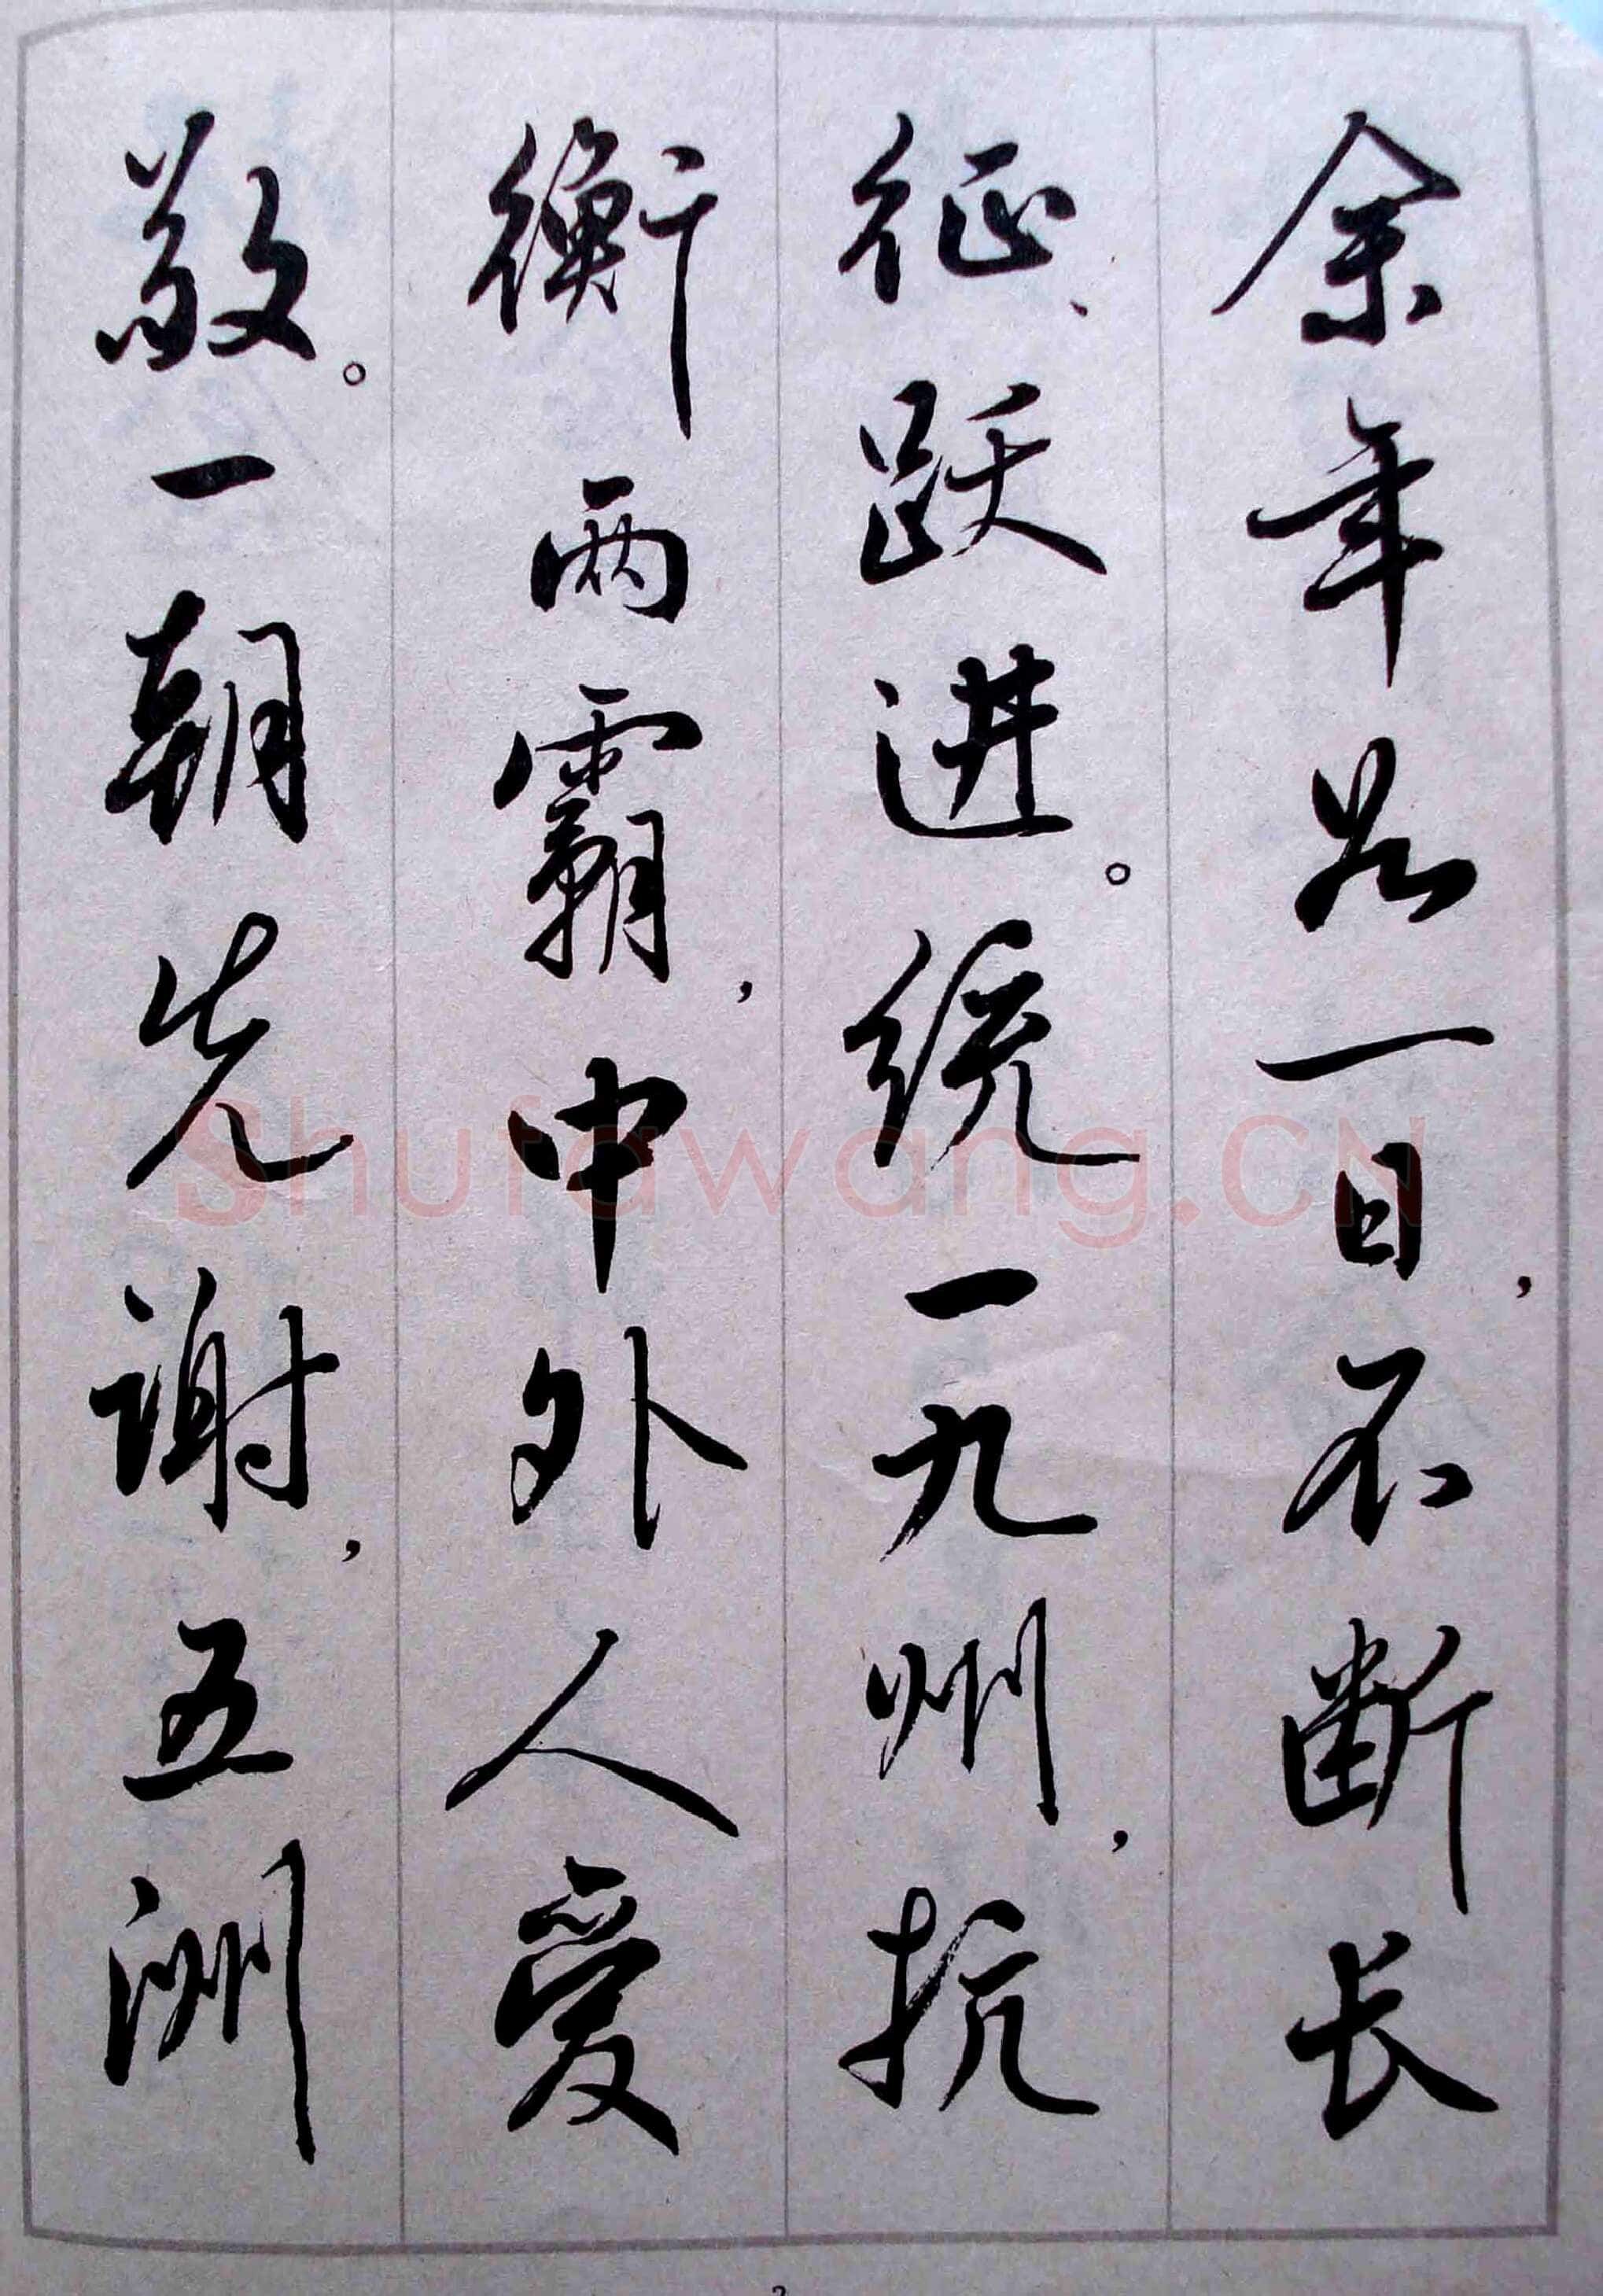 余年如一日,不断长
征、跃进。统一九州,抗
衡两霸,中外人爱
敬。一朝先谢,五洲
Shufawang.CN